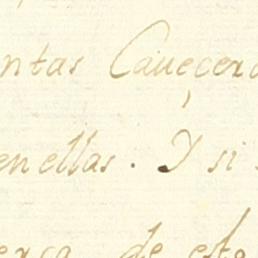 ntas Caueçera
en ellas. Y si
erca de esto